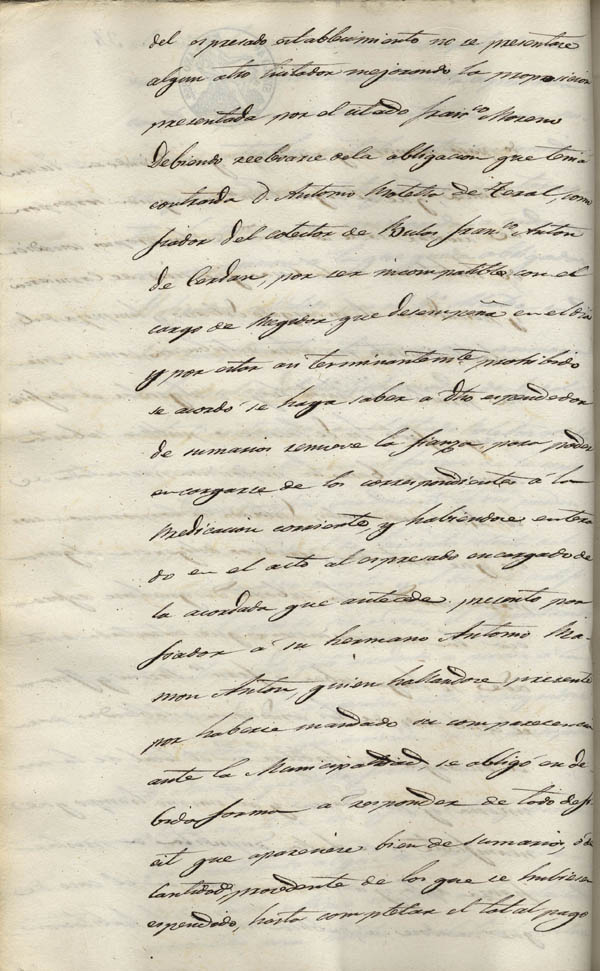 del espresado establecimiento no se presentare
algun otro licitador mejorando la proposicion
presentada por el citado Franco Moreno
Debiendo relebarse de la obligacion que tenia
contraida D. Antonio de Teral, como
fiador del colector de Bulas Franco Anton
de Cerdan, por ser incompatible con el
cargo de Regidor que desempeña en el dia
y por estar asi terminantemte prohibido
se acordó se haga saber a dho espendedor
de sumarios renueve la fianza para poder
encargarse de los correspondientes á la
Predicacion corriente, y habiendose entera
do en el acto al espresado encargado de
la acordada que antecede presento por
fiador á su hermano Antonio Ra-
mon Anton, quien hallandose presente
por haberse mandado su comparecencia
ante la Municipalidad, se obligó en de
bida forma a responder de todo defi
cit que apareciere bien de sumarios, ó de
cantidad procedente de los que se hubiesen
espendido, hasta completar el total pago